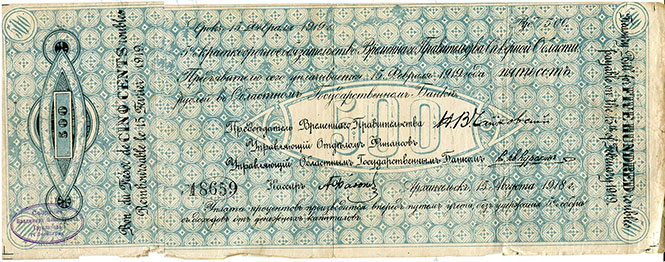 Срокъ 15 Февраля 1919 г.
Рб. 500.
5% краткосрочное обязательство Временнаго Правительства Сѣверной Области.
Предъявителю сего уплачивается 15 Февраля 1919 года пятьсотъ
рублей въ Областномъ Государственномъ Банкѣ.
500
Предсѣдатель Временнаго Правительства
Управляющій Отдѣломъ Финансовъ
Управляющій Областнымъ Государственнымъ Банкомъ
18659
Кассиръ
Архангельскъ 15 Августа 1918 г.
Уплата процентовъ производится впередъ путемъ учета, безъ удержанія % сбора
съ доходовъ отъ денежныхъ капиталовъ.
500
Bon du Trésor de CINQ CENTS roubles
Remboursable le 15 Février 1919
FIVE HUNDRED roubles
15th of February 1919